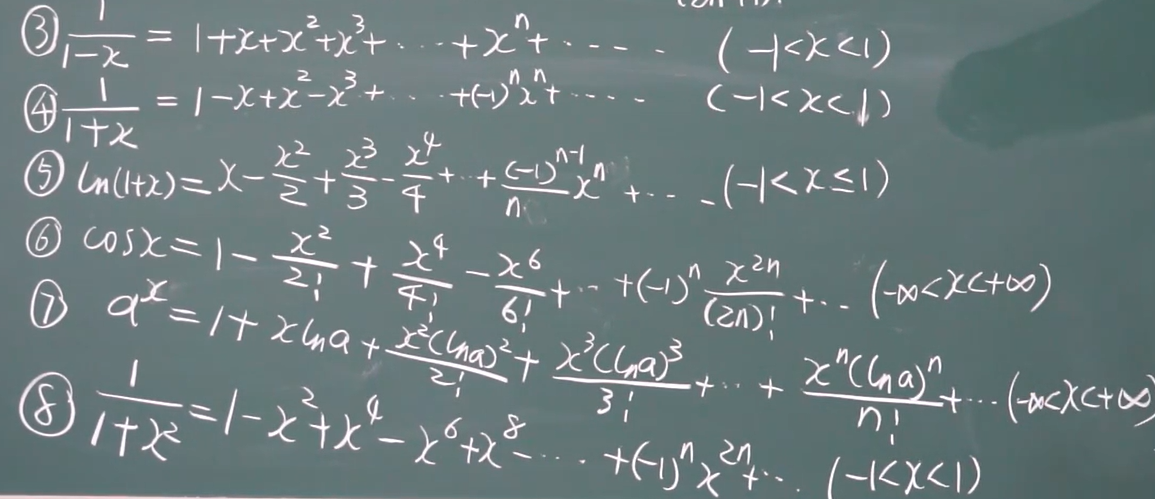 ③ 1/(1-x) = 1+x+x²+x³+ ···· +xⁿ+ ····· (-1<x<1)
④ 1/(1+x) = 1-x+x²-x³+ ···· +(-1)ⁿxⁿ+ ····· (-1<x<1)
⑤ ln(1+x)=x-x²/2+x³/3-x⁴/4+··+(-1)ⁿ⁻¹/n xⁿ +··· (-1<x≤1)
⑥ cosx=1-x²/2!+x⁴/4!-x⁶/6!+·· +(-1)ⁿ x²ⁿ/(2n)!+·· (-∞<x<+∞)
⑦ aˣ=1+xlna+x²(lna)²/2!+x³(lna)³/3!+··+xⁿ(lna)ⁿ/n!+··· (-∞<x<+∞)
⑧ 1/(1+x²)=1-x²+x⁴-x⁶+x⁸-···· +(-1)ⁿx²ⁿ+·· (-1<x<1)